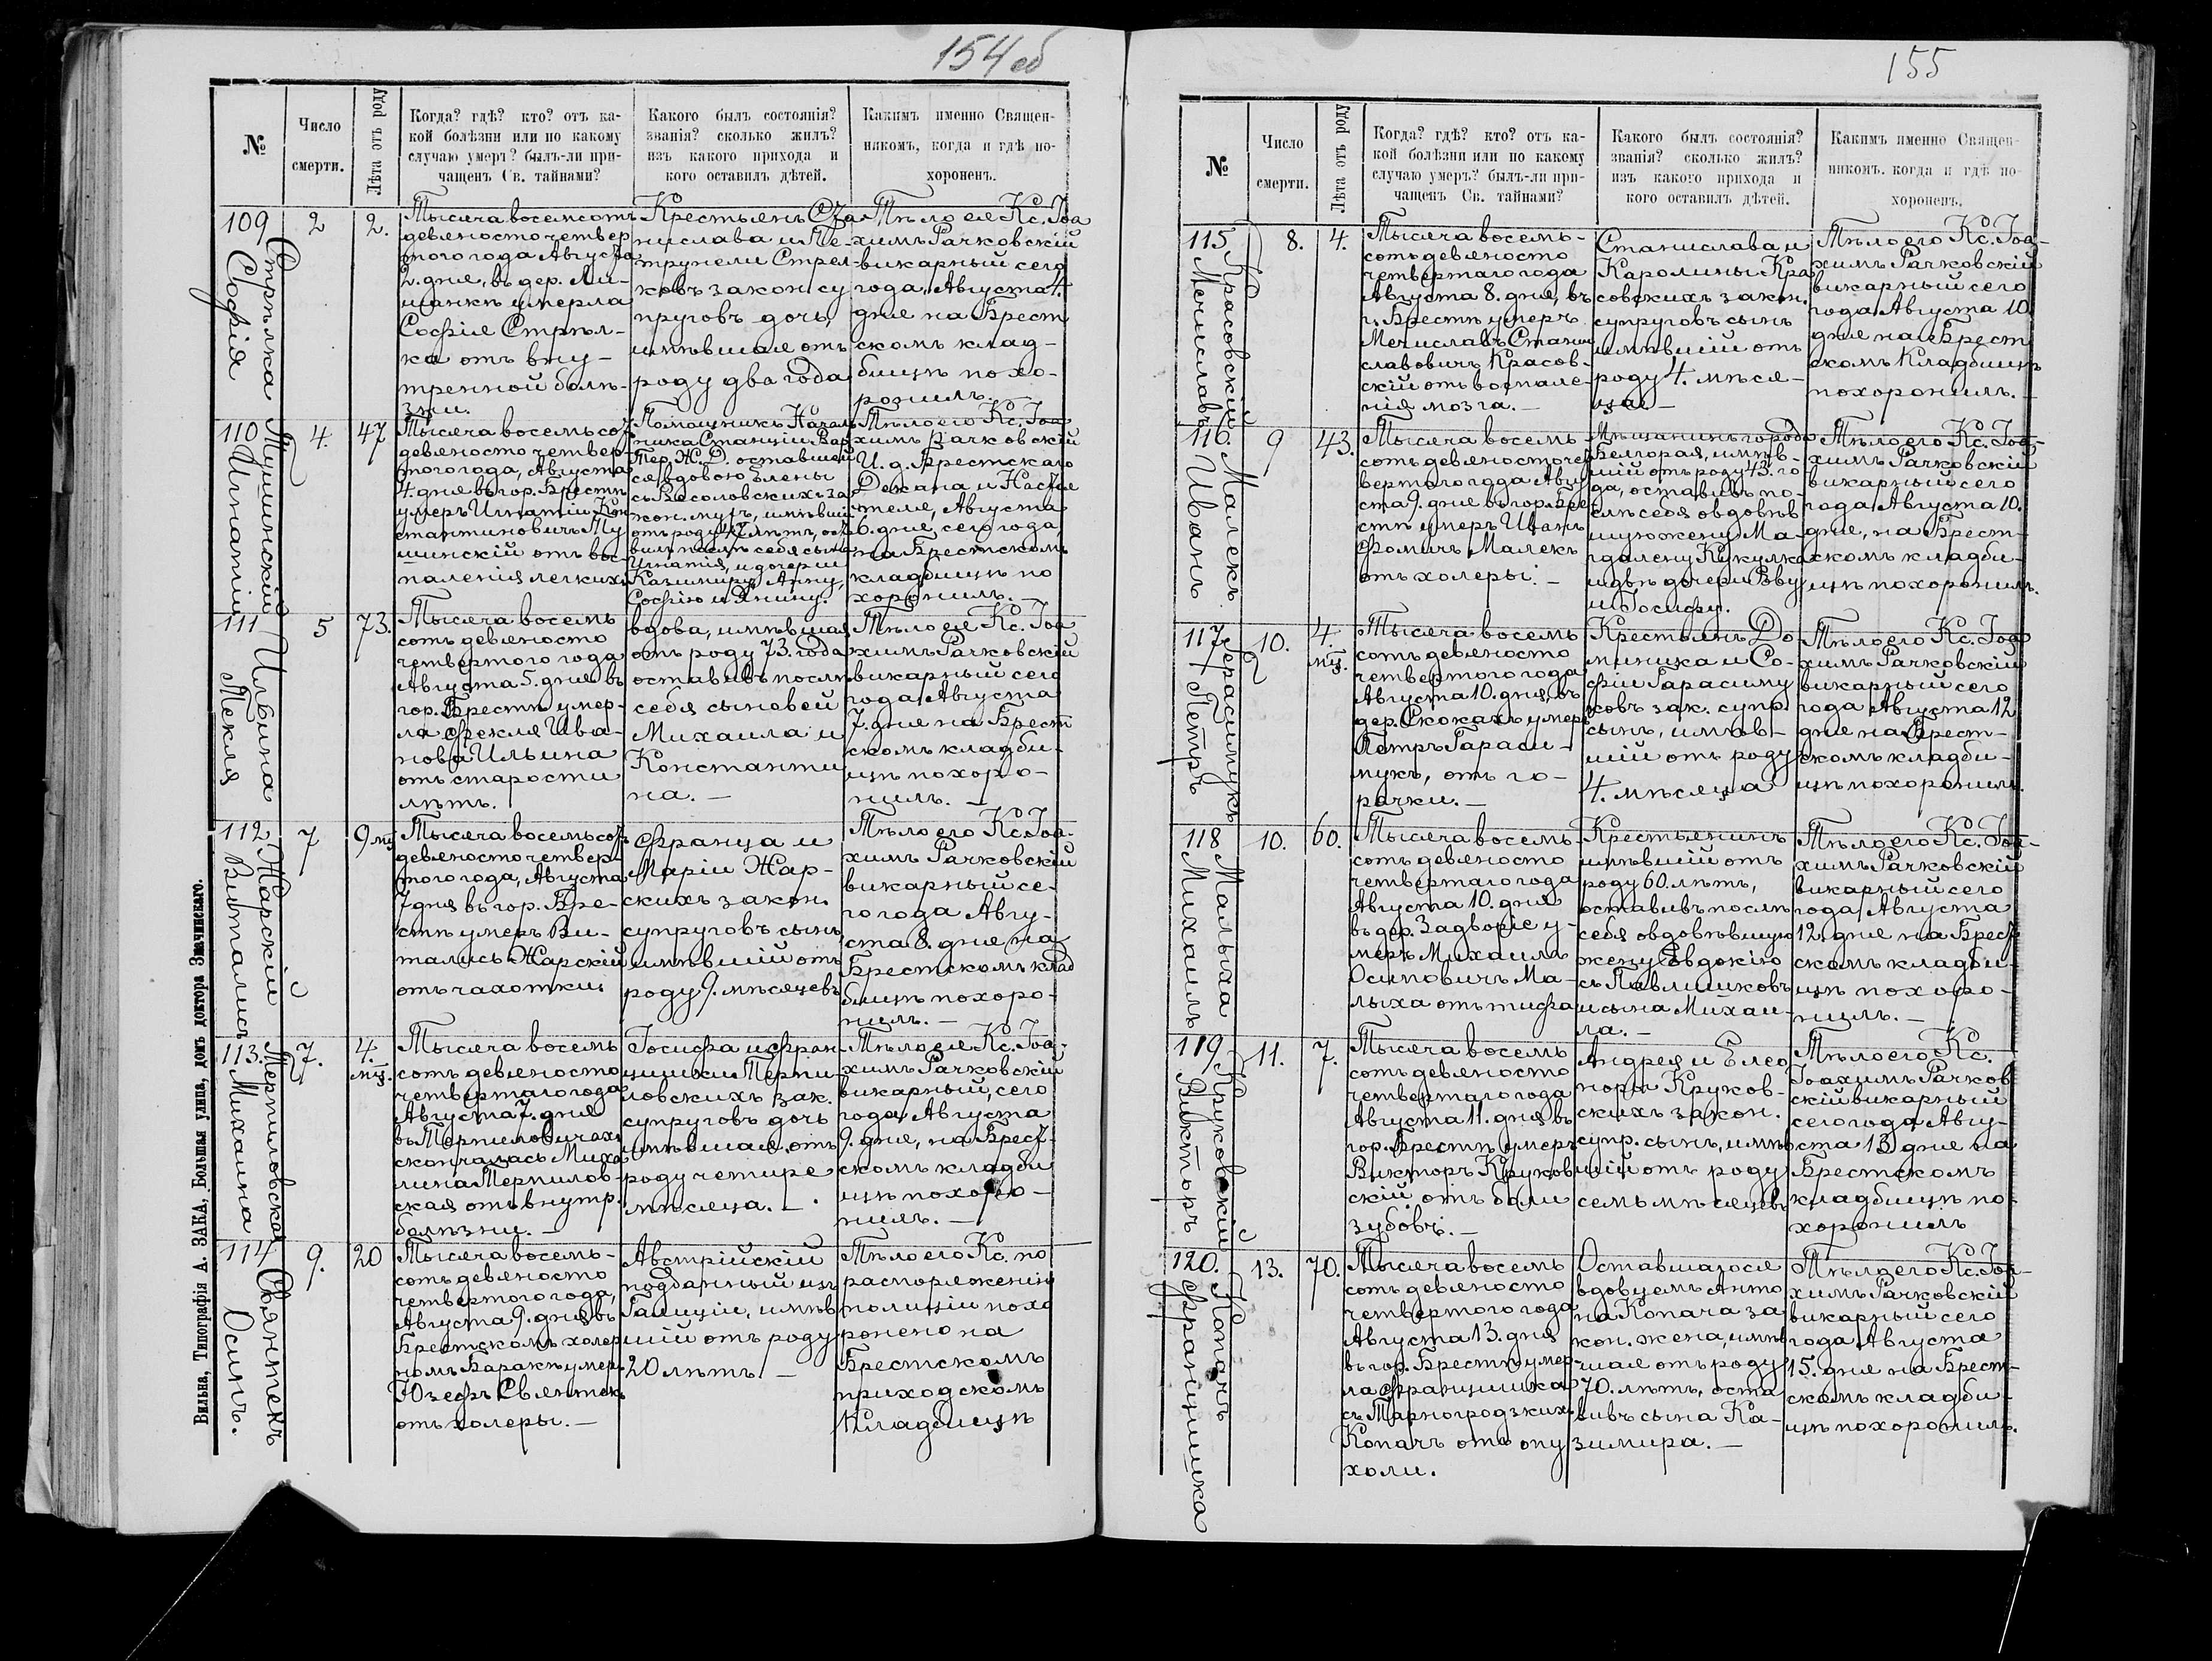 154 об
№
Число
смерти.
Лѣта отъ роду
Когда? гдѣ? кто? отъ ка-
кой болѣзни или по какому
случаю умеръ? былъ-ли при-
чащенъ Св. тайнами?
Какого былъ состоянія?
званія? сколько жилъ?
изъ какого прихода и
кого оставилъ дѣтей.
Какимъ именно Священ-
никомъ, когда и гдѣ по-
хороненъ.
109
Стрѣлка
Софія
2
2.
Тысяча восемсотъ
девяносто четвер
того года Августа
2. дня, въ дер.
умерла
Софія Стрѣл-
ка отъ вну-
тренной болѣ-
зни.
Крестьянъ Ста
нислава и Пе-
трунели Стрел-
ковъ закон су
пруговъ дочь,
имѣвшая отъ
роду два года
Тѣло ея Кс. Іоа
химъ Рачковскій
викарный сего
года, Августа 4.
дня на Брест
скомъ клад-
бищѣ похо-
ронилъ. —
110
Тушинскій
Игнатій
4.
47
Тысяча восемь сот
девяносто четвер-
того года, Августа
4. дня въ гор. Брестѣ
умеръ Игнатій Кон
стантиновичъ Ту
шинскій отъ вос-
паленія легкихъ
Помощникъ Началь
ника Станціи Вар
Тер. Ж. Д. оставшей
ся вдовою Елены
съ Весоловскихъ за
кон. мужъ, имѣвшій
отъ роду 47 лѣтъ, оста
вилъ послѣ себя сына
Игнатія, и дочерей
Казимиру, Анну,
Софію и Янину.
Тѣло его Кс. Іоа
химъ Рачковскій
И. д. Брестскаго
Декана и Насто
теля, Августа
6. дня, сего года,
на Брестскомъ
кладбищѣ по
хоронилъ. —
111
Ильина
Текля
5
73.
Тысяча восемь
сотъ девяносто
четвертого года
Августа 5. дня въ
гор. Брестѣ умер-
ла Фекля Ива-
нова Ильина
отъ старости
лѣтъ.
вдова, имѣвшая
отъ роду 73. года
оставивъ послѣ
себя сыновей
Михаила и
Константи
на. —
Тѣло ея Кс. Іоа
химъ Рачковскій
викарный сего
года Августа
7. дня на Брест
скомъ кладби-
щѣ похоро-
нилъ. —
112
Жарскій
Виталисъ
7
9 мц
Тысяча восемь сот
девяносто четвер-
того года, Августа
7 дня въ гор. Бре-
стѣ умеръ Ви-
талисъ Жарскій
отъ чахотки
Франца и
Маріи Жар-
скихъ закон.
супруговъ сынъ,
имѣвшій отъ
роду 9. мѣсяцевъ
Тѣло его Кс. Іоа-
химъ Рачковскій
викарный се-
го года Авгу-
ста 8. дня на
Брестскомъ клад
бищѣ похоро-
нилъ. —
113.
Терпиловская
Михалина
7.
4.
мц.
Тысяча восемь
сотъ девяносто
четвертаго года
Августа 7. дня
въ Терпиловичахъ
скончалась Миха
лина Терпилов-
ская отъ внутр.
болѣзни. —
Іосифа и Фран-
цишки Терпи-
ловскихъ зак.
супруговъ дочь
имѣвшая отъ
роду четире
мѣсяца. —
Тѣло ея Кс. Іоа-
химъ Рачковскій
викарный, сего
года, Августа
9. дня, на Брест
скомъ кладби
щѣ похоро-
нилъ. —
114
Свянтекъ
Осипъ.
9.
20
Тысяча восемь-
сотъ девяносто
четвертого года,
Августа 9. дня въ
Брестскомъ холер
номъ Баракѣ умеръ
Юзефъ Свянтекъ
отъ холеры. —
Австрійскій
подданный изъ
Галиціи, имѣв
шій отъ роду
20 лѣтъ. —
Тѣло его Кс. по
распоряженію
полиціи похо
ронено на
Брестскомъ
приходскомъ
Кладбищѣ
Вильна, Типографія А. ЗАКА, Большая улица, домъ доктора Змачинскаго.
155
№
Число
смерти.
Лѣта отъ роду
Когда? гдѣ? кто? отъ ка-
кой болѣзни или по какому
случаю умеръ? былъ-ли при-
чащенъ Св. тайнами?
Какого былъ состоянія?
званія? сколько жилъ?
изъ какого прихода и
кого оставилъ дѣтей.
Какимъ именно Священ-
никомъ. когда и гдѣ по-
хороненъ.
115
Красовскій
Мечиславъ
8.
4.
Тысяча восемь-
сотъ девяносто
четвертаго года
Августа 8. дня, въ
г. Брестѣ умеръ
Мечиславъ Стани
славовичъ Красов-
скій отъ воспале-
нія мозга. —
Станислава и
Каролины Кра
совскихъ закон.
супруговъ сынъ
имѣвшій отъ
роду 4. мѣся-
ца —
Тѣло его Кс. Іоа-
химъ Рачковскій
викарный сего
года Августа 10.
дня на Брест
скомъ Кладбищѣ
похоронилъ. —
116.
Малекъ
Иванъ
9
43.
Тысяча восемь
сотъ девяносто чет
вертого года Авгу
ста 9. дня въ гор. Бре
стѣ умеръ Иванъ
Фомичъ Малекъ
отъ холеры. —
Мѣщанинъ города
Белгорая, имѣв-
шій отъ роду 43. го
да, оставивъ по-
слѣ себя овдовѣв
шую жену Ма-
гдалену Кукулка
и двѣ дочери Еву
и Іосифу.
Тѣло его Кс. Іоа-
химъ Рачковскій
викарный сего
года Августа 10.
дня, на Брест-
скомъ кладби-
щѣ похоронилъ.
117
Герасимукъ
Петръ
10.
4.
мц.
Тысяча восемь
сотъ девяносто
четвертого года
Августа 10. дня, въ
дер. Скокахъ умеръ
Петръ Гараси-
мукъ, отъ го-
рачки. —
Крестьянъ До
миника и Со-
фіи Гарасиму
ковъ зак. супр.
сынъ, имѣв-
шій отъ роду
4. мѣсяца
Тѣло его Кс. Іоа
химъ Рачковскій
викарный сего
года Августа 12
дня на Брест-
скомъ кладби-
щѣ похоронилъ.
118
Малыха
Михаилъ
10.
60.
Тысяча восемь-
сотъ девяносто
четвертаго года
Августа 10. дня
въ дер. Задворіе у-
меръ Михаилъ
Осиповичъ Ма-
лыха отъ тифа
Крестьянинъ
имѣвшій отъ
роду 60. лѣтъ,
оставивъ послѣ
себя овдовѣвшую
жену Евдокію
съ Павлишковъ
и сына Михаи-
ла. —
Тѣло его Кс. Іоа-
химъ Рачковскій
викарный сего
года Августа
12. дня на Брест
скомъ кладби-
щѣ похоро-
нилъ. —
119
Круковскій
Викторъ
11.
7.
Тысяча восемь
сотъ девяносто
четвертаго года
Августа 11. дня въ
гор. Брестѣ умеръ
Викторъ Круков
скій отъ боли
зубовъ. —
Андрея и Елео
норы Круков-
скихъ закон.
супр. сынъ, имѣв
шій отъ роду
семь мѣсяцевъ
Тѣло его Кс.
Іоахимъ Рачков
скій викарный
сего года Авгу-
ста 13 дня на
Брестскомъ
кладбищѣ по-
хоронилъ
120.
Копачъ
Францишка
13.
70.
Тысяча восемь
сотъ девяносто
четвертого года
Августа 13. дня
въ гор. Брестѣ умер
ла Францишка
съ Тарногродзкихъ
Копачъ отъ опу
холи.
Оставшагося
вдовцемъ Анто
на Копача за
кон. жена, имѣв
шая отъ роду
70. лѣтъ, оста
вивъ сына Ка-
зимира. —
Тѣло его Кс. Іоа-
химъ Рачковскій
викарный сего
года Августа
15. дня на Брест-
скомъ кладби-
щѣ похоронилъ.